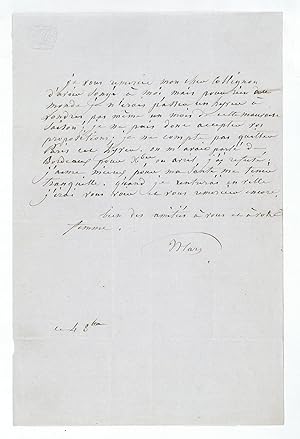 je vous remercie mon cher Collignon
d'avoir songé à moi mais pour rien au
monde je n'irais passer un hyver à
Londres pas même un mois de cette mauvaise
saison; je ne puis donc accepter vos
propositions; je ne compte pas quitter
Paris cet hyver. on m'avait parlé de
Bordeaux pour Xbre ou avril, j'ai refusé;
j'aime mieux pour ma santé me tenir
tranquille. quand je rentrerai en ville
j'irai vous voir et vous remercier encore.
bien des amitiés à vous et à votre
femme.
Mars
ce 4 8bre